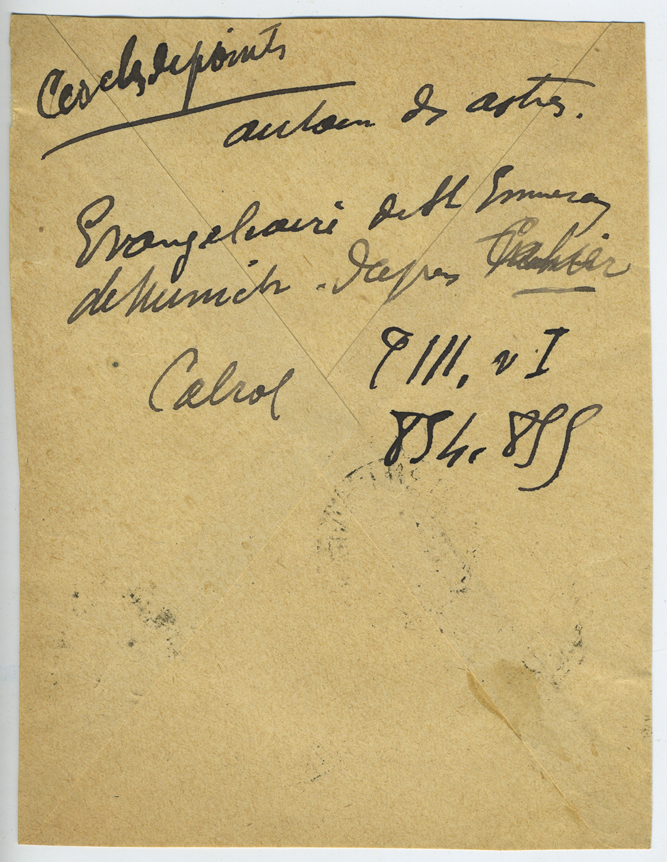 Cercles de points
autour des astres.
Evangeliaire de St Emmeran
de Munich. d'apres Cahier
Cabrol T III, v I
854, 855